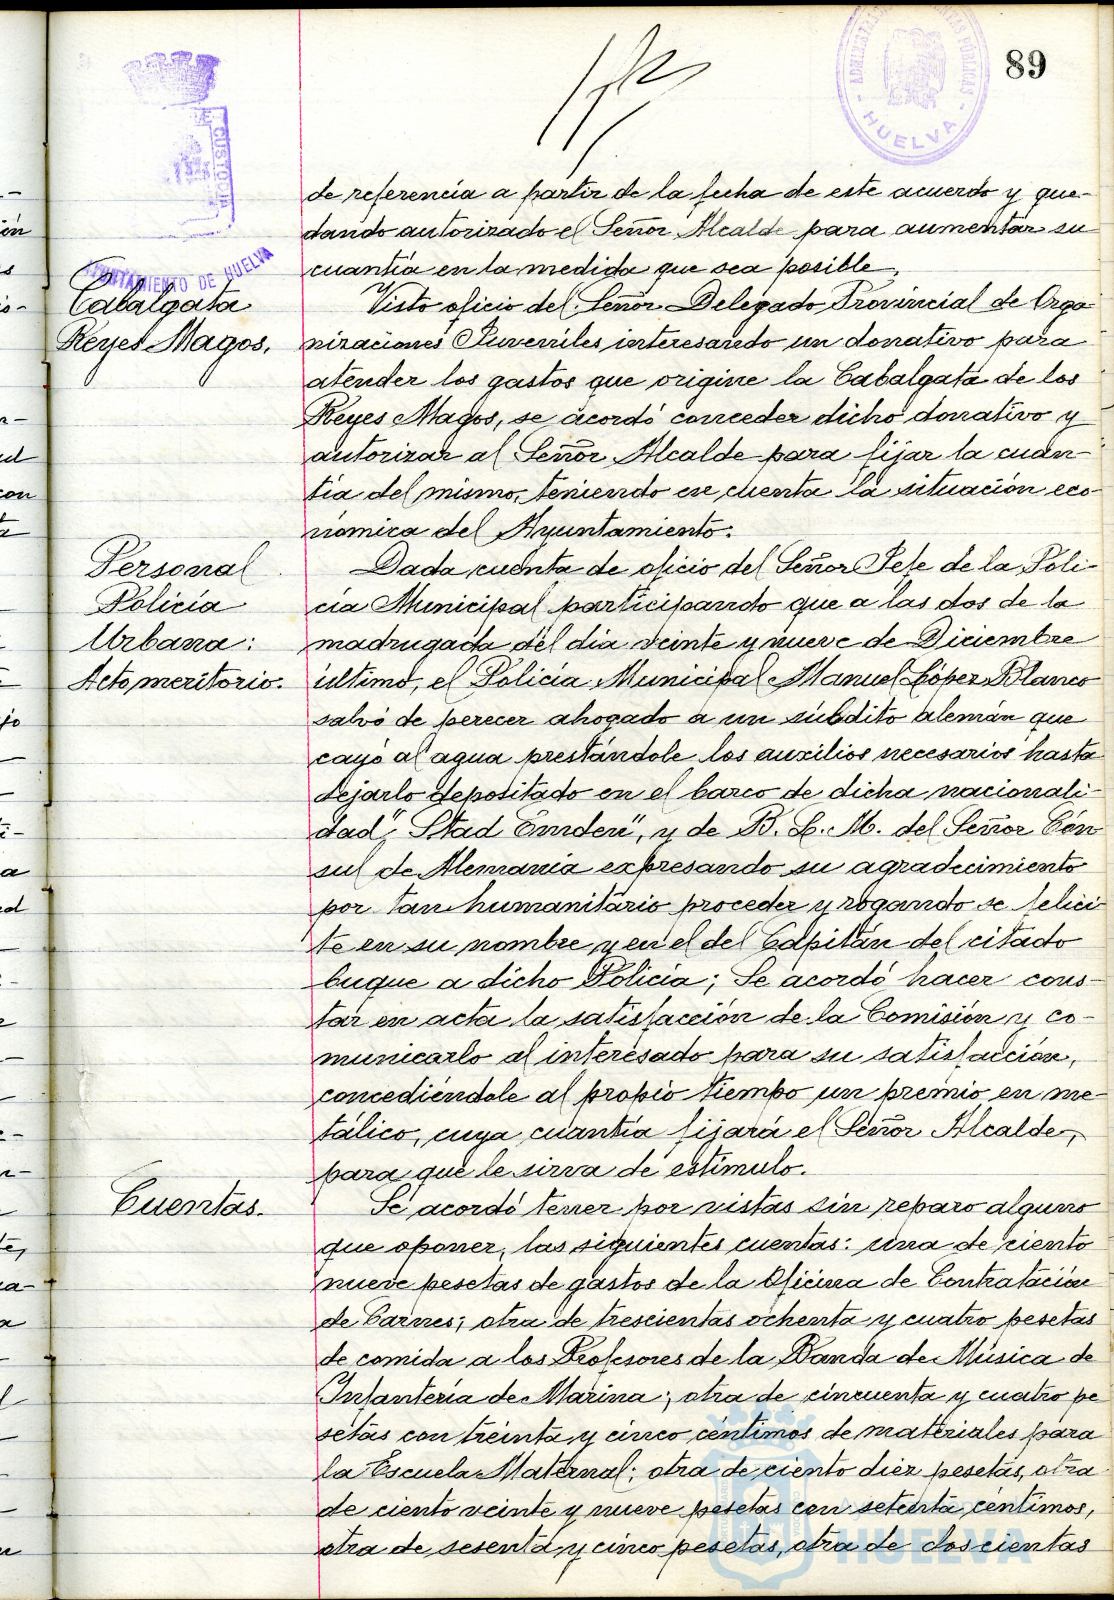 89
ADMINISTRACIÓN DE RENTAS PÚBLICAS
- HUELVA -
CUSTODIA
AYUNTAMIENTO DE HUELVA
de referencia a partir de la fecha de este acuerdo y que-
dando autorizado el Señor Alcalde para aumentar su
cuantía en la medida que sea posible.
Cabalgata
Reyes Magos.
Visto oficio del Señor Delegado Provincial de Orga
nizaciones Juveniles interesando un donativo para
atender los gastos que origine la Cabalgata de los
Reyes Magos, se acordó conceder dicho donativo y
autorizar al Señor Alcalde para fijar la cuan-
tía del mismo, teniendo en cuenta la situación eco-
nómica del Ayuntamiento.
Personal
Policía
Urbana:
Acto meritorio.
Dada cuenta de oficio del Señor Jefe de la Poli-
cía Municipal participando que a las dos de la
madrugada del día veinte y nueve de Diciembre
último, el Policía Municipal Manuel López Blanco
salvó de perecer ahogado a un súbdito alemán que
cayó al agua prestándole los auxilios necesarios hasta
dejarlo depositado en el barco de dicha nacionali-
dad "Stad Emden", y de B. L. M. del Señor Cón
sul de Alemania expresando su agradecimiento
por tan humanitario proceder y rogando se felici-
te en su nombre y en el del Capitán del citado
buque a dicho Policía; Se acordó hacer cons-
tar en acta la satisfacción de la Comisión y co-
municarlo al interesado para su satisfacción,
concediéndole al propio tiempo un premio en me-
tálico, cuya cuantía fijará el Señor Alcalde,
para que le sirva de estímulo.
Cuentas.
Se acordó tener por vistas sin reparo alguno
que oponer, las siguientes cuentas: una de ciento
nueve pesetas de gastos de la Oficina de Contratación
de Carnes; otra de trescientas ochenta y cuatro pesetas
de comida a los Profesores de la Banda de Música de
Infantería de Marina; otra de cincuenta y cuatro pe
setas con treinta y cinco céntimos de materiales para
la Escuela Maternal; otra de ciento diez pesetas, otra
de ciento veinte y nueve pesetas con setenta céntimos,
otra de sesenta y cinco pesetas, otra de doscientas
HUELVA